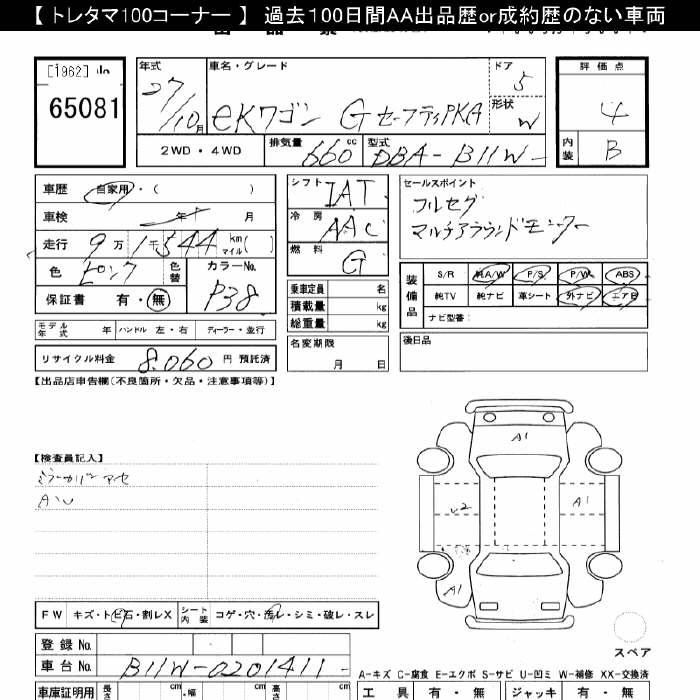 【 トレタマ100コーナー 】 過去100日間AA出品歴or成約歴のない車両
[1962]
65081
年式
27/10月
車名・グレード
eKワゴン G セーフティPKA
ドア
5
形状
W
評価点
4
内装
B
2WD・4WD
排気量
660cc
型式
DBA- B11W-
車歴 自家用・( )
車検 年 月
走行 9万 1千 544 km マイル( )
色 ピンク 色替
カラーNo.
P38
保証書 有・無
モデル年式 年 ハンドル 左・右 ディーラー・並行
リサイクル料金 8,060 円 預託済
シフト
IAT
冷房
AAC
燃料
G
乗車定員 名
積載量 kg
総重量 kg
名変期限
月 日
セールスポイント
フルセグ
マルチアラウンドモニター
装備品
S/R 純A/W P/S P/W ABS
純TV 純ナビ 革シート 外ナビ エアB
ナビ型番:
後日品
【出品店申告欄(不良箇所・欠品・注意事項等)】
【検査員記入】
ミラーカバーアセ
A1
U2
A1
A1
FW キズ・トビ石・割レX シート内装 コゲ・穴・汚レ・シミ・破レ・スレ
スペア
登録 No.
車台 No. B11W-0201411-
A-キズ C-腐食 E-エクボ S-サビ U-凹ミ W-補修 XX-交換済
車庫証明用 長さ cm ・幅 cm 高さ cm
工具 有・無 ジャッキ 有・無